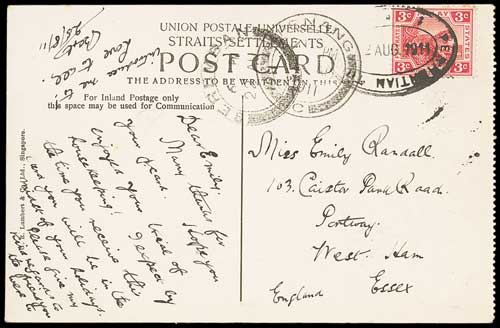 UNION POSTALE UNIVERSELLE
STRAITS SETTLEMENTS
POST CARD
THE ADDRESS TO BE WRITTEN ON THIS
For Inland Postage only
this space may be used for Communication
Lambert & Co., Ltd., Singapore.
PENANG
AUG 1911
3c 3c
STATES
3c 3c
love to all
28/8/11
Dear Emily
Many thanks for
your card. Hope you
enjoyed your week of
housekeeping! I expect by
the time you receive this
you will be in the
of your holidays.
Please give my
kind regards to
Miss Emily Randall.
103. Caistor Park Road.
Portway
West Ham
England Essex